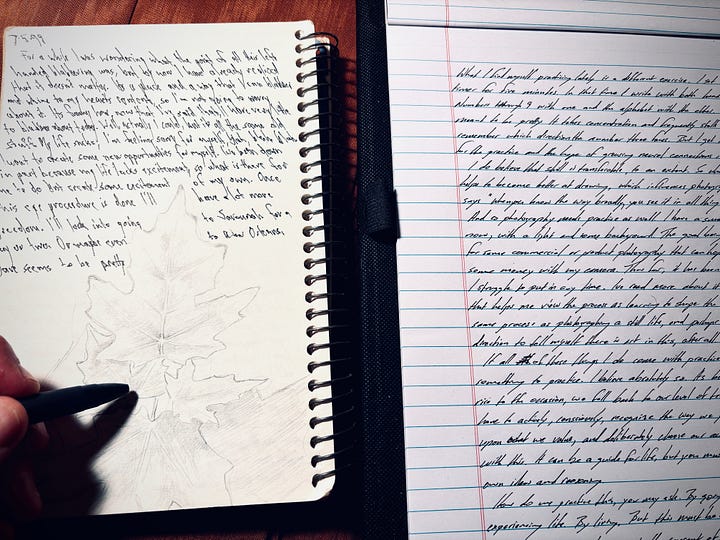 7.5.99
For a while I was wondering what the point of all this left
handed blathering was, but by now I need already realized
that it doesn't matter. Its a place and a way that I can
and whine to my hearts content, so I'm not going to worry
about it. Its Sunday now, now that I said that, I have very little
to blather about today. Will wonders
My life sucks! I'm feeling sorry for myself,
I want to create some new opportunities for myself,
in part because my life lacks excitement, so what is there for
me to do but create some excitement of my own. Once
this eye procedure is done I'll have a lot more
freedom. I'll look into going to Savannah for a
day or two. Or maybe even to New Orleans.
seems to be pretty
What I find myself practicing lately is a different exercise. I set
timer for five minutes. In that time I write with both han
Numbers through 9 with one and the alphabet with the other.
meant to be pretty. It takes concentration and frequently
remember which direction the number three faces. But I
for the practice and the hope of growing neural connections
do believe that skill is transferable, to an extent. So
helps to become better at drawing, which influences photog
says "When you know the way broadly, you see it in all thing
And so photography needs practice as well. I have a
room, with a light and some background. The good
for some commercial or product photography that can
some money with my camera. Thus far, it has been
I struggle to put in any time. I've read more about
that helps me view the process as learning to shape the
same process as photographing a still life, and perhaps
direction to tell myself there is art in this, after all.
If all of these things I do come with practice
something to practice. I believe absolutely so. As
rise to the occasion, we fall back to our level of
have to actively, consciously, recognize the way we
upon what we value, and deliberately choose our
with this. It can be a guide for life, but you mus
own ideas and reasoning.
How do we practice this, you may ask. By going
experiencing life. By living. But this must be